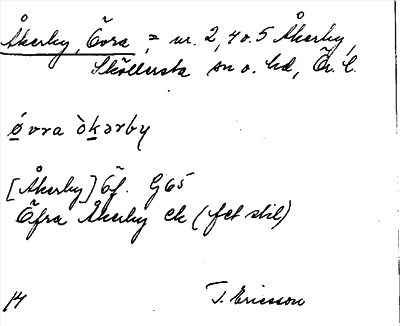 Åkerby, Övra, = nr. 2, 4 o. 5 Åkerby,
Sköllersta sn o. hd, Ör. l.
øvra òkərby
[Åkerby] Öf. G65
Öfra Åkerby ek (fet stil)
14 T. Ericsson